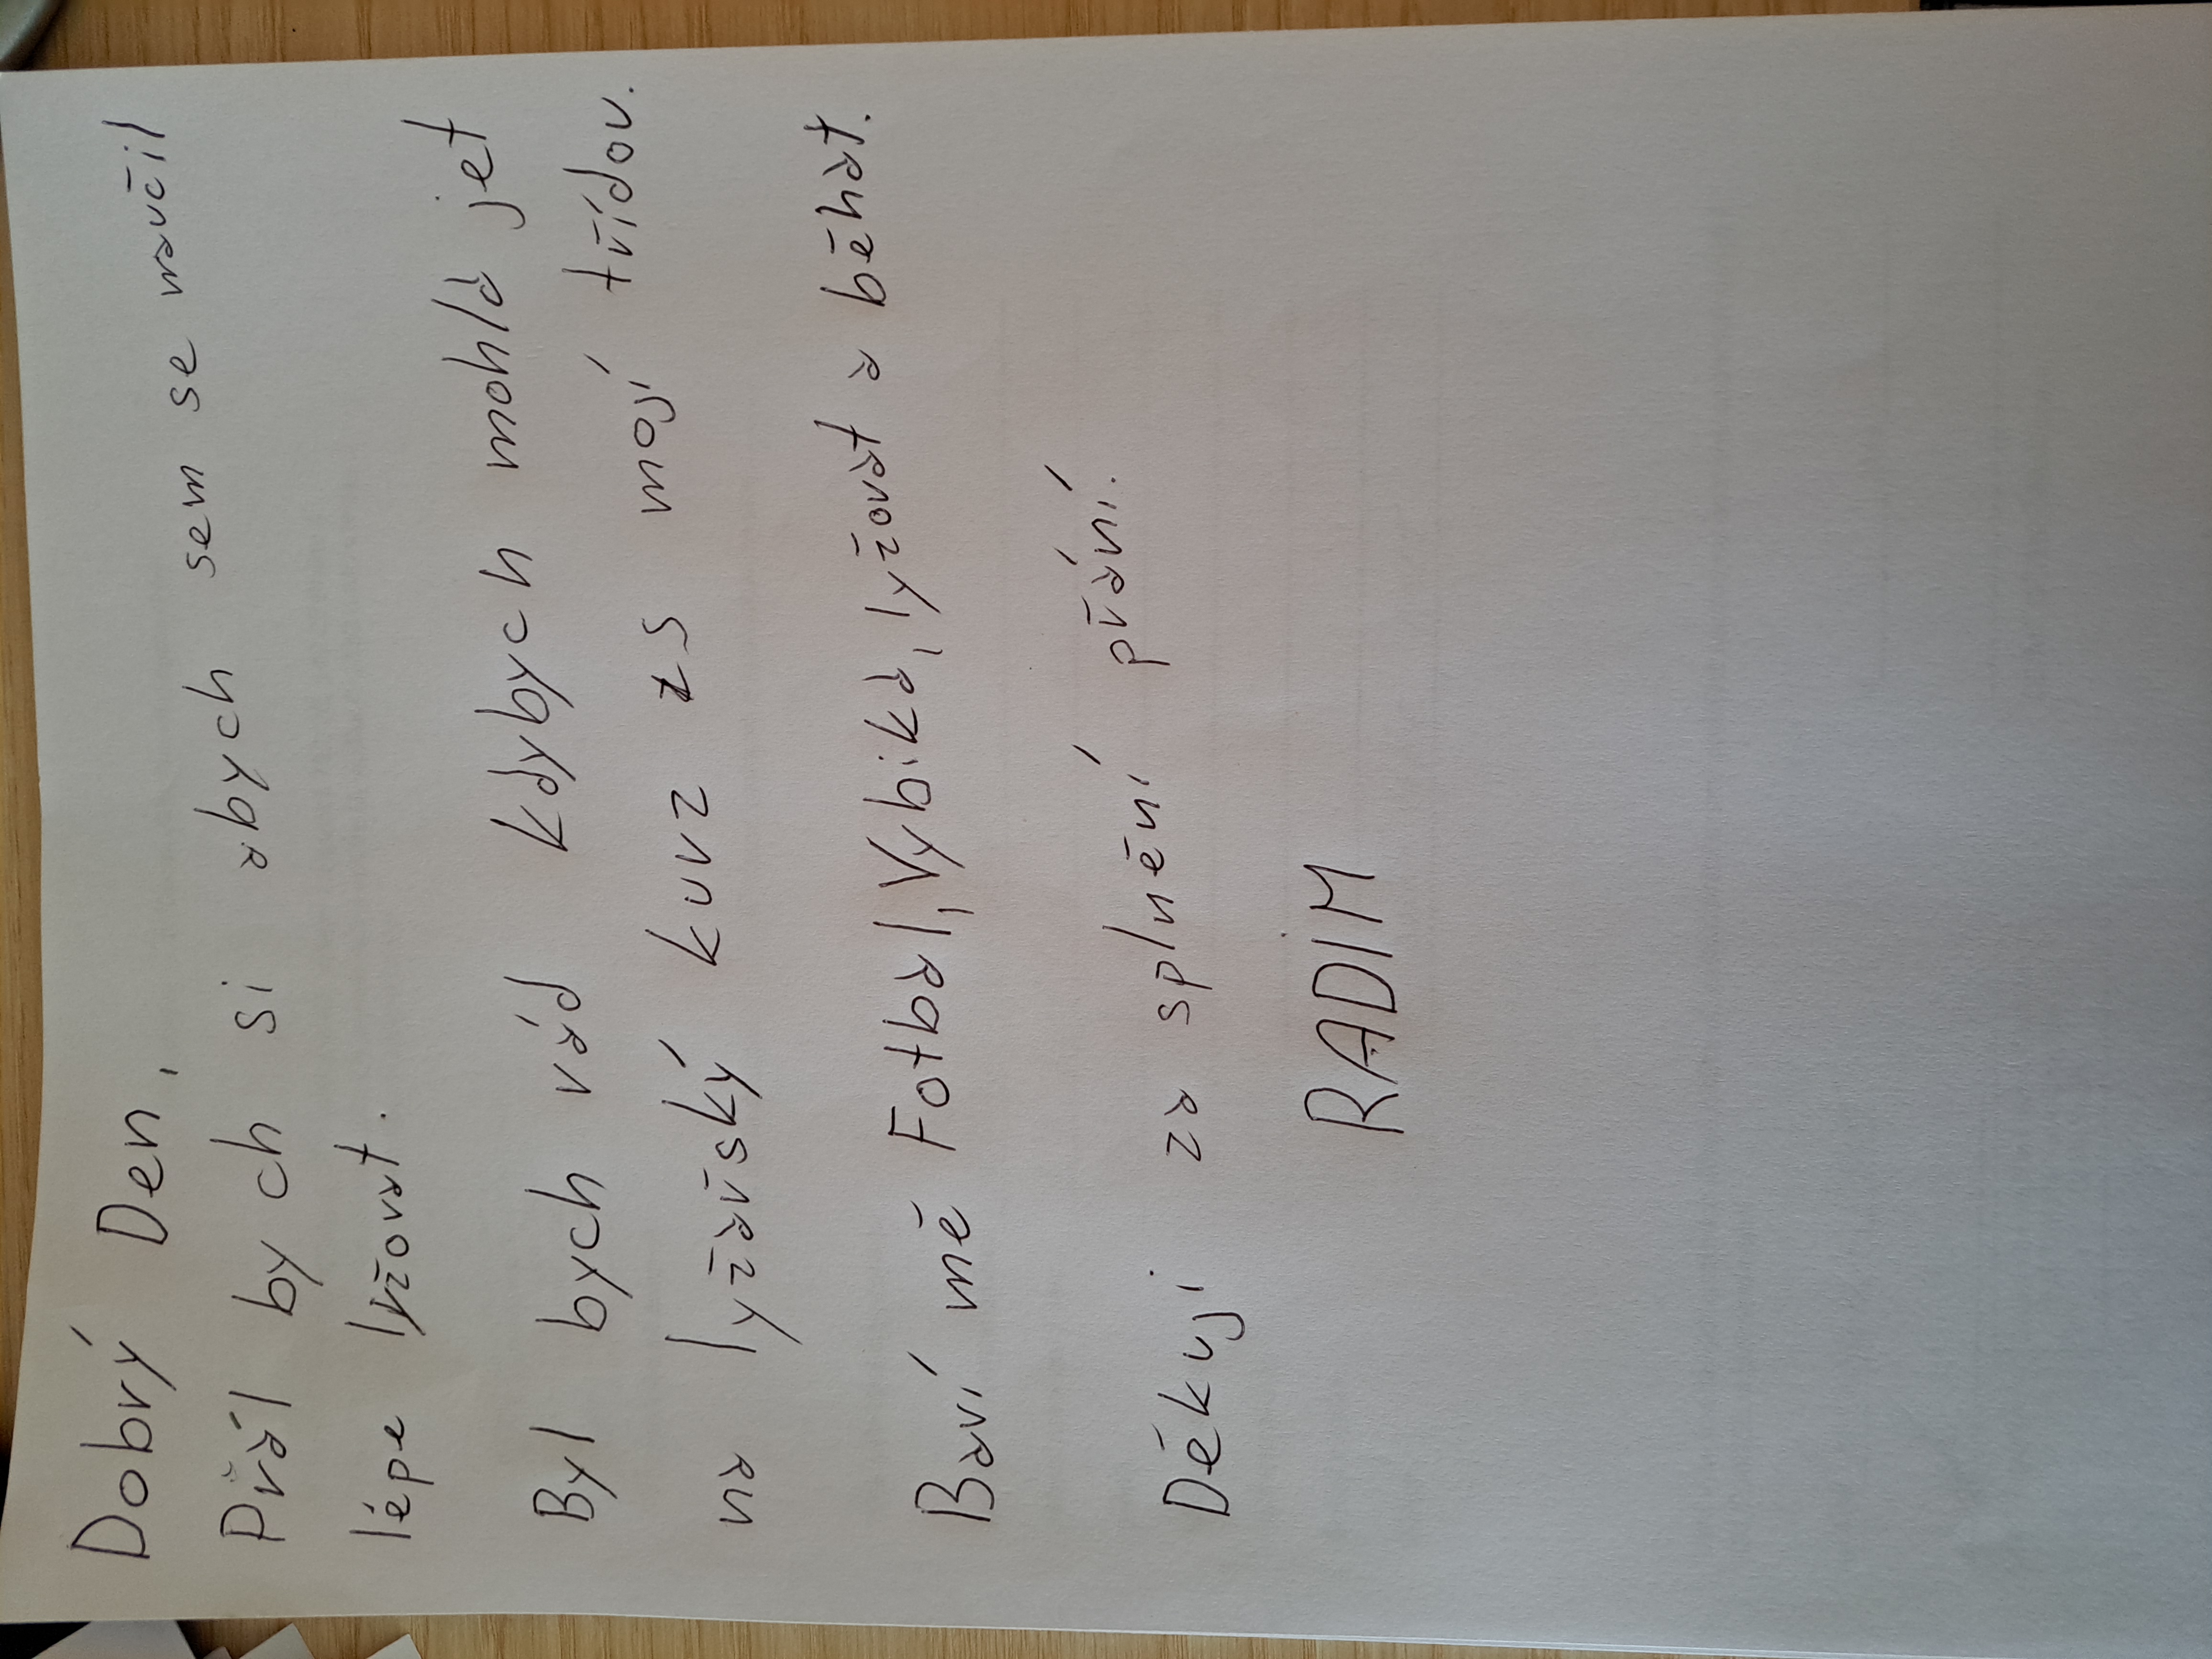 Dobrý Den,
Přál by ch si abych sem se naučil
lépe lyžovat.
Byl bych rád kdybych mohla jet
na lyžařský kurz zs mojí třídou.
Baví mě Fotbal, Vybika, lyžovat a běhat.
Děkuji za splnění přání.
RADIM